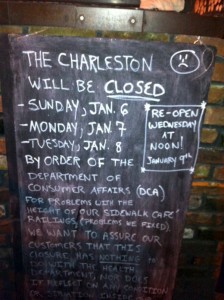 THE CHARLESTON
WILL BE CLOSED
- SUNDAY, JAN. 6
- MONDAY, JAN. 7
- TUESDAY, JAN. 8
RE-OPEN
WEDNESDAY
AT
NOON!
JANUARY 9TH
BY ORDER OF THE
DEPARTMENT OF
CONSUMER AFFAIRS (DCA)
FOR PROBLEMS WITH THE
HEIGHT OF OUR SIDEWALK CAFE
RAILINGS (PROBLEMS WE FIXED).
WE WANT TO ASSURE OUR
CUSTOMERS THAT THIS
CLOSURE HAS NOTHING
TO DO WITH THE HEALTH
DEPARTMENT, NOR DOES
IT REFLECT ON ANY CONDITION
INSIDE